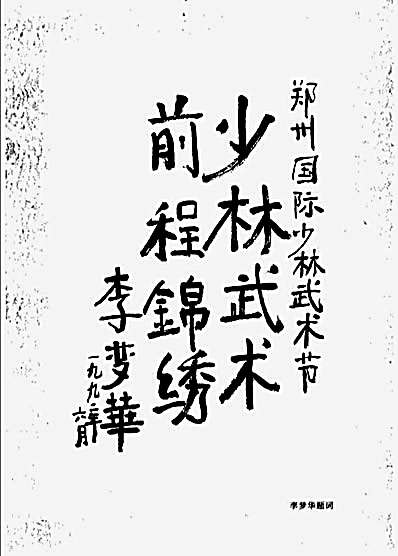 郑州国际少林武术节
少林武术
前程錦绣
李梦華
一九九
李梦华题词